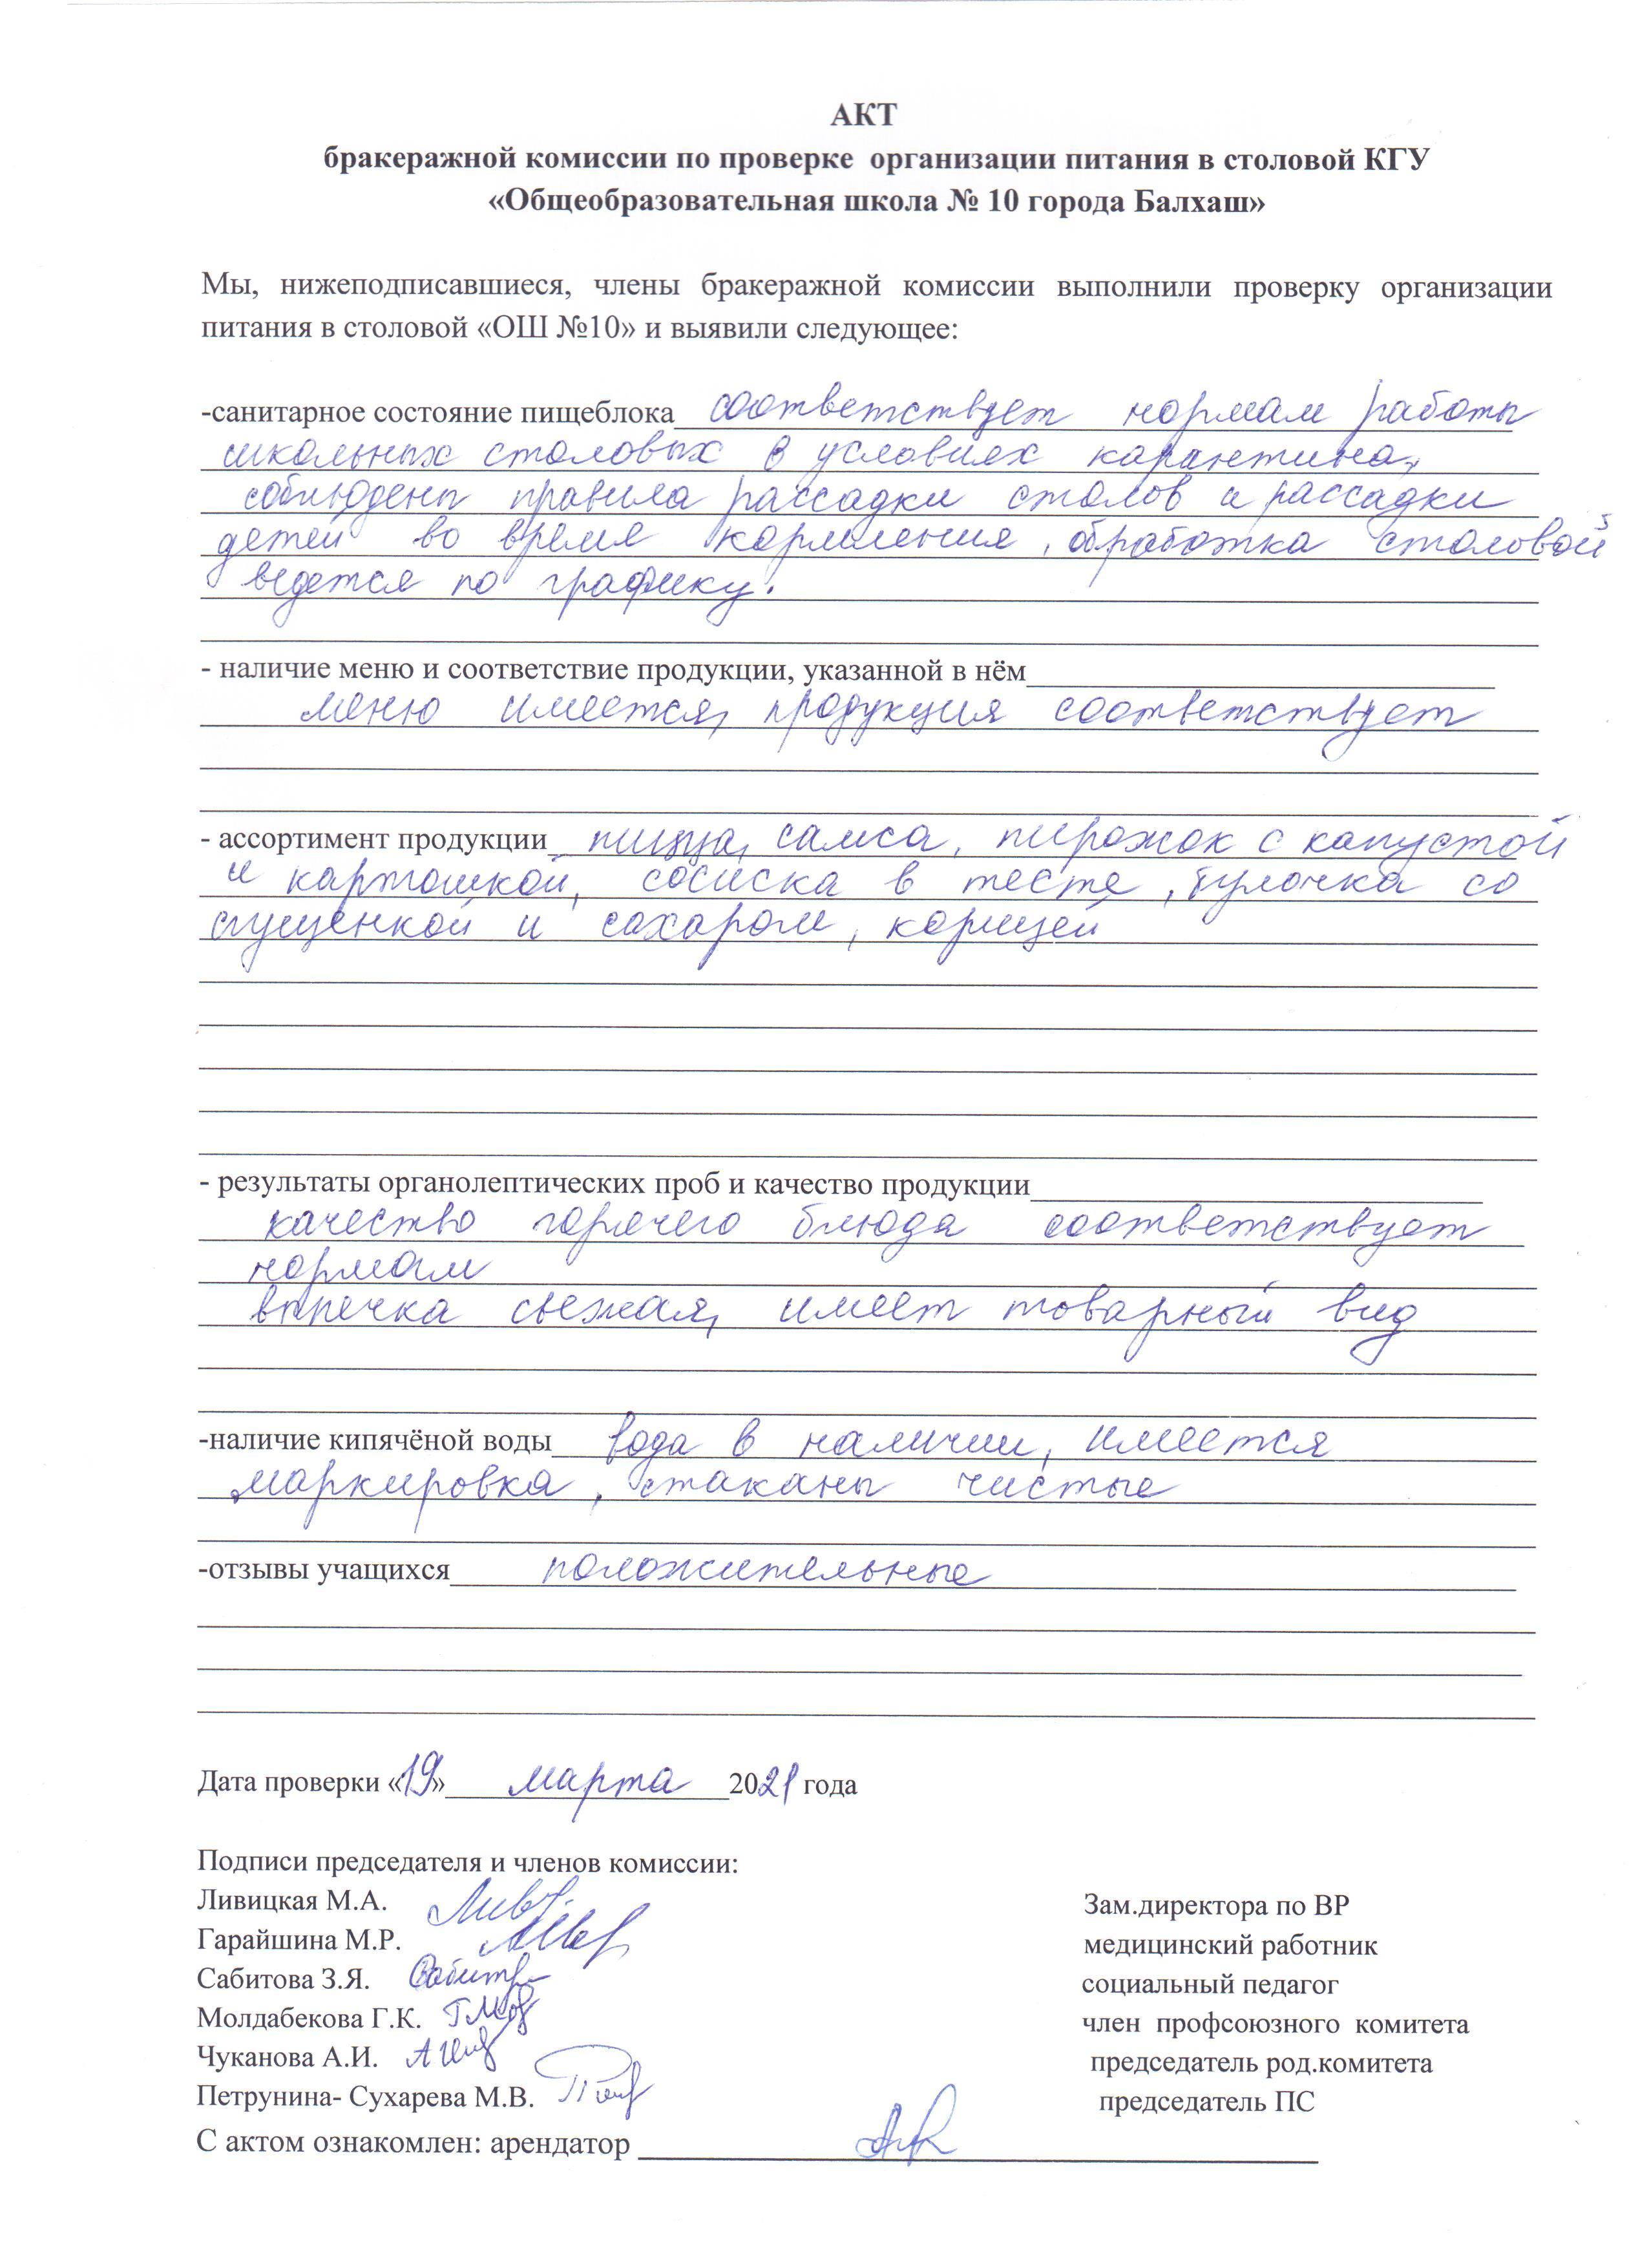 АКТ
бракеражной комиссии по проверке организации питания в столовой КГУ
«Общеобразовательная школа № 10 города Балхаш»
Мы, нижеподписавшиеся, члены бракеражной комиссии выполнили проверку организации
питания в столовой «ОШ №10» и выявили следующее:
-санитарное состояние пищеблока соответствует нормам работы
школьных столовых в условиях карантина,
соблюдены правила рассадки столов и рассадки
детей во время кормления, обработка столовой
ведется по графику.
- наличие меню и соответствие продукции, указанной в нём
меню имеется, продукция соответствует
- ассортимент продукции пицца, самса, пирожок с капустой
и картошкой, сосиска в тесте, булочка со
сгущенкой и сахаром, корицей
- результаты органолептических проб и качество продукции
качество горячего блюда соответствует
нормам
выпечка свежая, имеет товарный вид
-наличие кипячёной воды вода в наличии, имеется
маркировка, стаканы чистые
-отзывы учащихся положительные
Дата проверки «19» марта 2021 года
Подписи председателя и членов комиссии:
Ливицкая М.А. Зам.директора по ВР
Гарайшина М.Р. медицинский работник
Сабитова З.Я. социальный педагог
Молдабекова Г.К. член профсоюзного комитета
Чуканова А.И. председатель род.комитета
Петрунина- Сухарева М.В. председатель ПС
С актом ознакомлен: арендатор